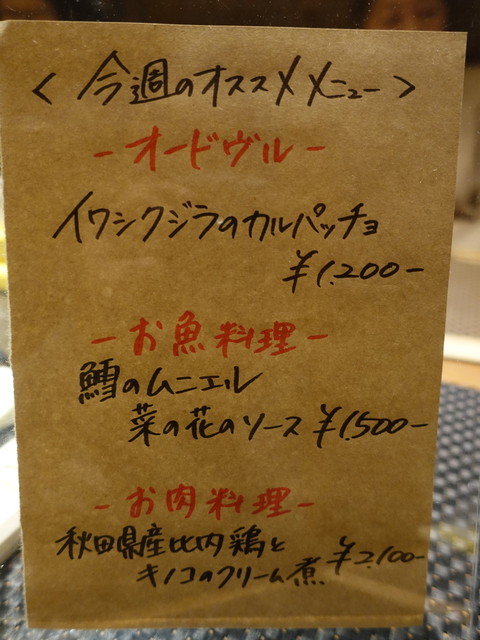 ＜今週のオススメメニュー＞
-オードヴル-
イワシクジラのカルパッチョ
¥1,200-
-お魚料理-
鱈のムニエル
菜の花のソース ¥1,500-
-お肉料理-
秋田県産比内鶏と
キノコのクリーム煮 ¥2,100-